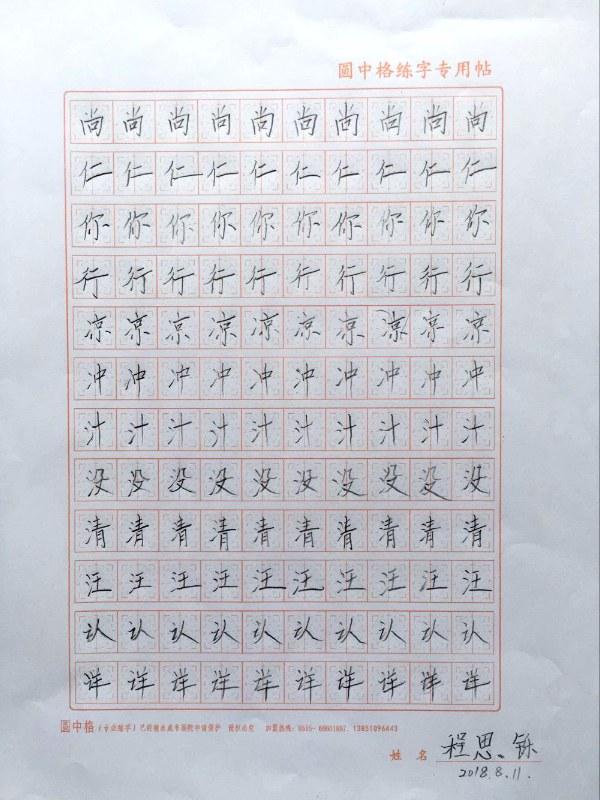 圆中格练字专用帖
尚尚尚尚尚尚尚尚尚尚
仁仁仁仁仁仁仁仁仁仁
你你你你你你你你你你
行行行行行行行行行行
凉凉凉凉凉凉凉凉凉凉
冲冲冲冲冲冲冲冲冲冲
汁汁汁汁汁汁汁汁汁汁
没没没没没没没没没没
清清清清清清清清清清
汪汪汪汪汪汪汪汪汪汪
认认认认认认认认认认
详详详详详详详详详详
圆中格(专业练字)已经被 申请保护 侵权必究 加盟热线: 13851096443
姓 名 程思铄
2018.8.11.